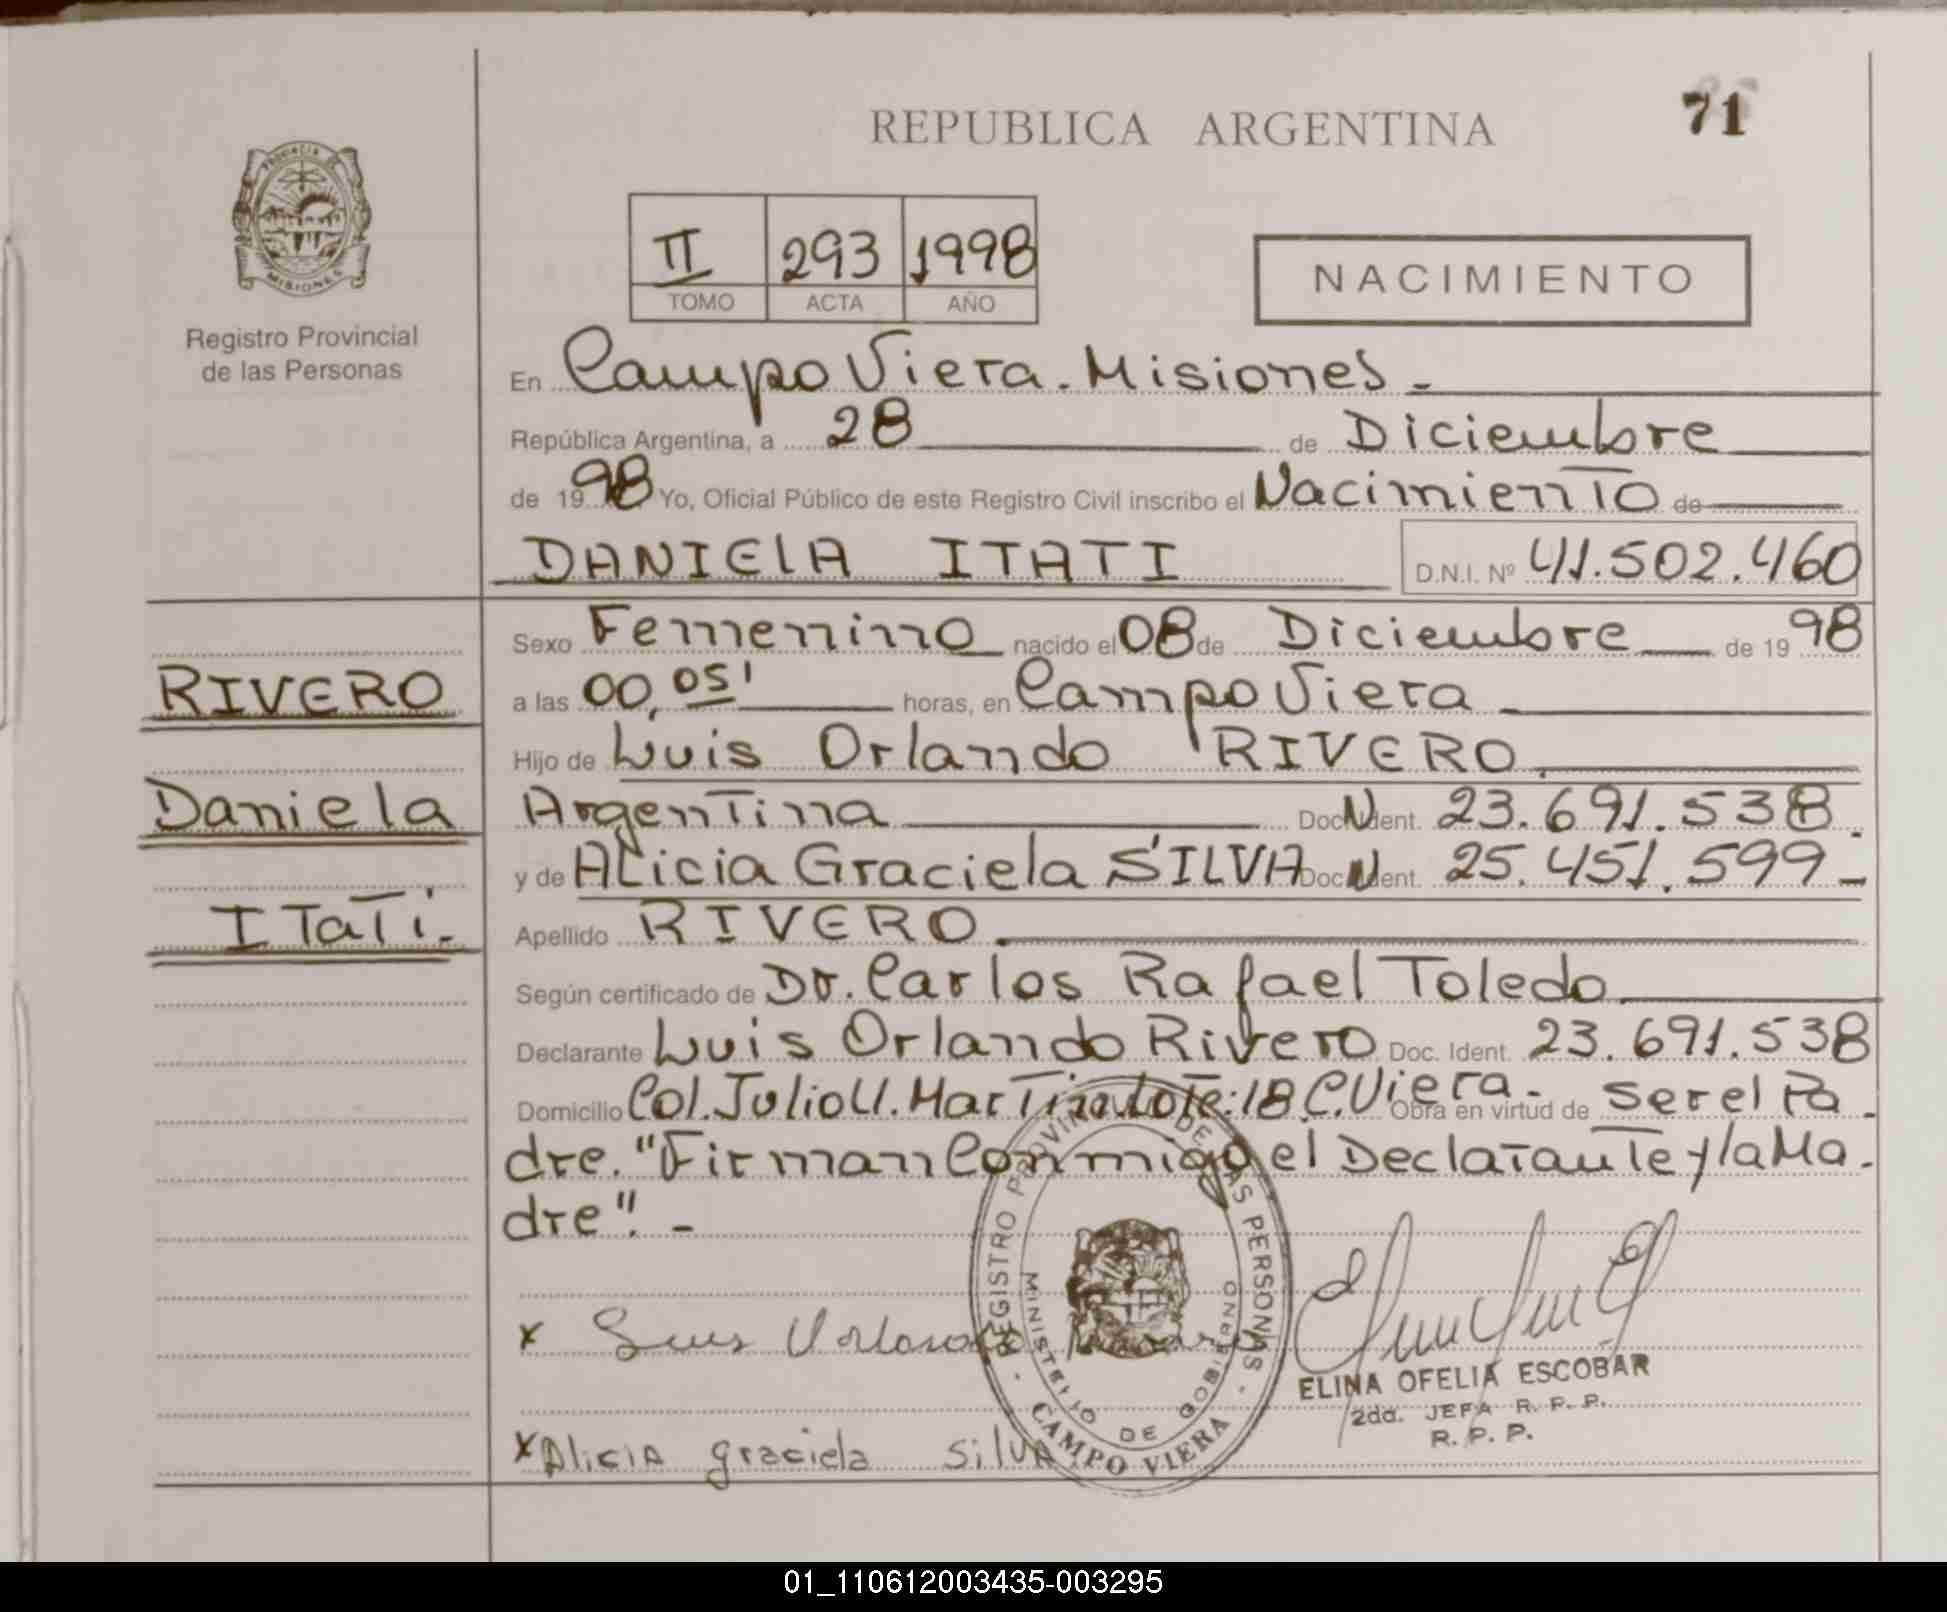 REPUBLICA ARGENTINA
71
PROVINCIA DE
MISIONES
Registro Provincial
de las Personas
II 293 1998
TOMO ACTA AÑO
NACIMIENTO
En Campo Viera. Misiones.-
República Argentina, a 28 de Diciembre
de 1998 Yo, Oficial Público de este Registro Civil inscribo el Nacimiento de
DANIELA ITATI D.N.I. Nº 41.502.460
Sexo Femenino nacido el 08 de Diciembre de 1998
RIVERO
a las 00,05' horas, en Campo Viera
Hijo de Luis Orlando RIVERO.
Daniela
Argentina Doc. Ident. N 23.691.538.
y de Alicia Graciela SILVA Doc. Ident. N 25.451.599-
Itati.-
Apellido RIVERO.
Según certificado de Dr. Carlos Rafael Toledo
Declarante Luis Orlando Rivero Doc. Ident. 23.691.538
Domicilio Col. Julio U. Martin Lote: 18 C. Viera.- Obra en virtud de ser el Pa-
dre. "Firman Conmigo el Declarante y la Ma-
dre".-
REGISTRO PROVINCIAL DE LAS PERSONAS
MINISTERIO DE GOBIERNO
CAMPO VIERA
x Luis Orlando Rivero
ELINA OFELIA ESCOBAR
2da. JEFA R. P. P.
R. P. P.
x Alicia graciela SilVA
01_110612003435-003295